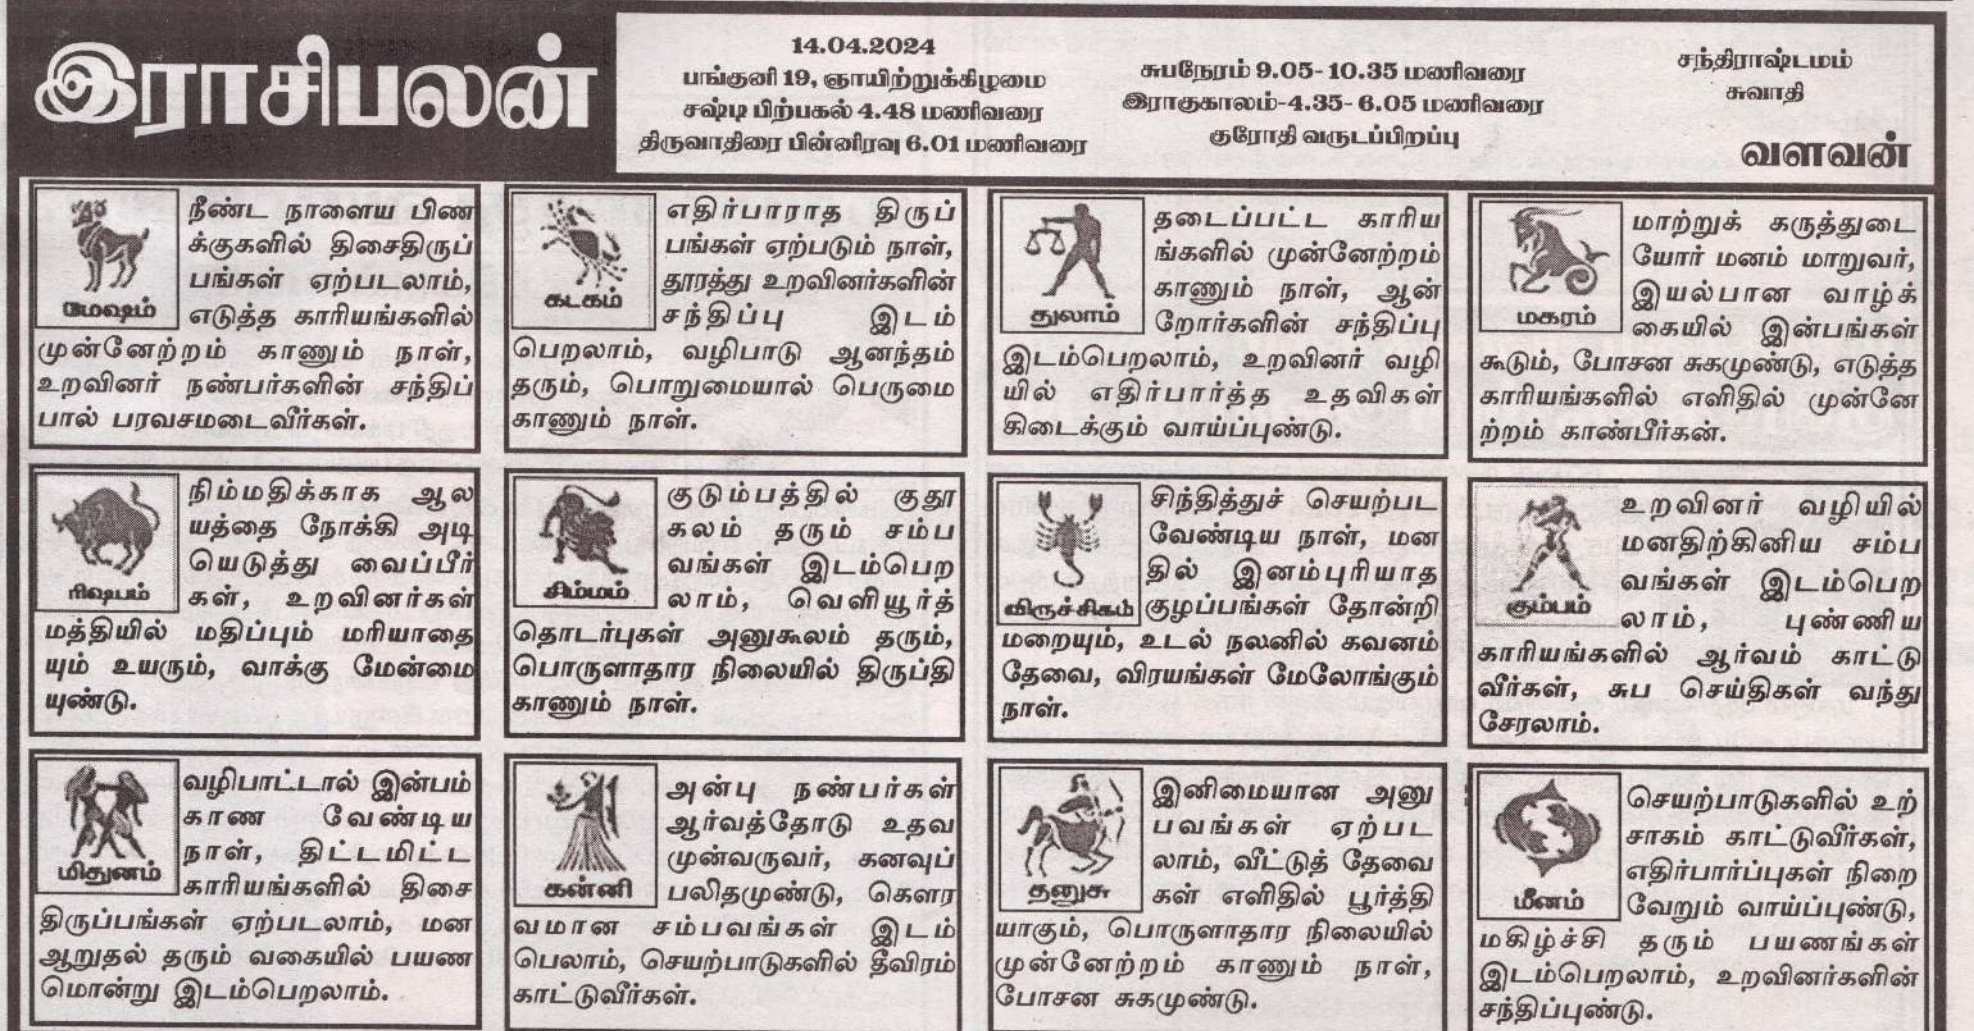 இராசிபலன்
14.04.2024
பங்குனி 19, ஞாயிற்றுக்கிழமை
சஷ்டி பிற்பகல் 4.48 மணிவரை
திருவாதிரை பின்னிரவு 6.01 மணிவரை
சுபநேரம் 9.05- 10.35 மணிவரை
இராகுகாலம்-4.35- 6.05 மணிவரை
குரோதி வருடப்பிறப்பு
சந்திராஷ்டமம்
சுவாதி
வளவன்
மேஷம்
நீண்ட நாளைய பிண
க்குகளில் திசைதிருப்
பங்கள் ஏற்படலாம்,
எடுத்த காரியங்களில்
முன்னேற்றம் காணும் நாள்,
உறவினர் நண்பர்களின் சந்திப்
பால் பரவசமடைவீர்கள்.
ரிஷபம்
நிம்மதிக்காக ஆல
யத்தை நோக்கி அடி
யெடுத்து வைப்பீர்
கள், உறவினர்கள்
மத்தியில் மதிப்பும் மரியாதை
யும் உயரும், வாக்கு மேன்மை
யுண்டு.
மிதுனம்
வழிபாட்டால் இன்பம்
காண வேண்டிய
நாள், திட்டமிட்ட
காரியங்களில் திசை
திருப்பங்கள் ஏற்படலாம், மன
ஆறுதல் தரும் வகையில் பயண
மொன்று இடம்பெறலாம்.
கடகம்
எதிர்பாராத திருப்
பங்கள் ஏற்படும் நாள்,
தூரத்து உறவினர்களின்
சந்திப்பு இடம்
பெறலாம், வழிபாடு ஆனந்தம்
தரும், பொறுமையால் பெருமை
காணும் நாள்.
சிம்மம்
குடும்பத்தில் குதூ
கலம் தரும் சம்ப
வங்கள் இடம்பெற
லாம், வெளியூர்த்
தொடர்புகள் அனுகூலம் தரும்,
பொருளாதார நிலையில் திருப்தி
காணும் நாள்.
கன்னி
அன்பு நண்பர்கள்
ஆர்வத்தோடு உதவ
முன்வருவர், கனவுப்
பலிதமுண்டு, கௌர
வமான சம்பவங்கள் இடம்
பெலாம், செயற்பாடுகளில் தீவிரம்
காட்டுவீர்கள்.
துலாம்
தடைப்பட்ட காரிய
ங்களில் முன்னேற்றம்
காணும் நாள், ஆன்
றோர்களின் சந்திப்பு
இடம்பெறலாம், உறவினர் வழி
யில் எதிர்பார்த்த உதவிகள்
கிடைக்கும் வாய்ப்புண்டு.
விருச்சிகம்
சிந்தித்துச் செயற்பட
வேண்டிய நாள், மன
தில் இனம்புரியாத
குழப்பங்கள் தோன்றி
மறையும், உடல் நலனில் கவனம்
தேவை, விரயங்கள் மேலோங்கும்
நாள்.
தனுசு
இனிமையான அனு
பவங்கள் ஏற்பட
லாம், வீட்டுத் தேவை
கள் எளிதில் பூர்த்தி
யாகும், பொருளாதார நிலையில்
முன்னேற்றம் காணும் நாள்,
போசன சுகமுண்டு.
மகரம்
மாற்றுக் கருத்துடை
யோர் மனம் மாறுவர்,
இயல்பான வாழ்க்
கையில் இன்பங்கள்
கூடும், போசன சுகமுண்டு, எடுத்த
காரியங்களில் எளிதில் முன்னே
ற்றம் காண்பீர்கன்.
கும்பம்
உறவினர் வழியில்
மனதிற்கினிய சம்ப
வங்கள் இடம்பெற
லாம், புண்ணிய
காரியங்களில் ஆர்வம் காட்டு
வீர்கள், சுப செய்திகள் வந்து
சேரலாம்.
மீனம்
செயற்பாடுகளில் உற்
சாகம் காட்டுவீர்கள்,
எதிர்பார்ப்புகள் நிறை
வேறும் வாய்ப்புண்டு,
மகிழ்ச்சி தரும் பயணங்கள்
இடம்பெறலாம், உறவினர்களின்
சந்திப்புண்டு.